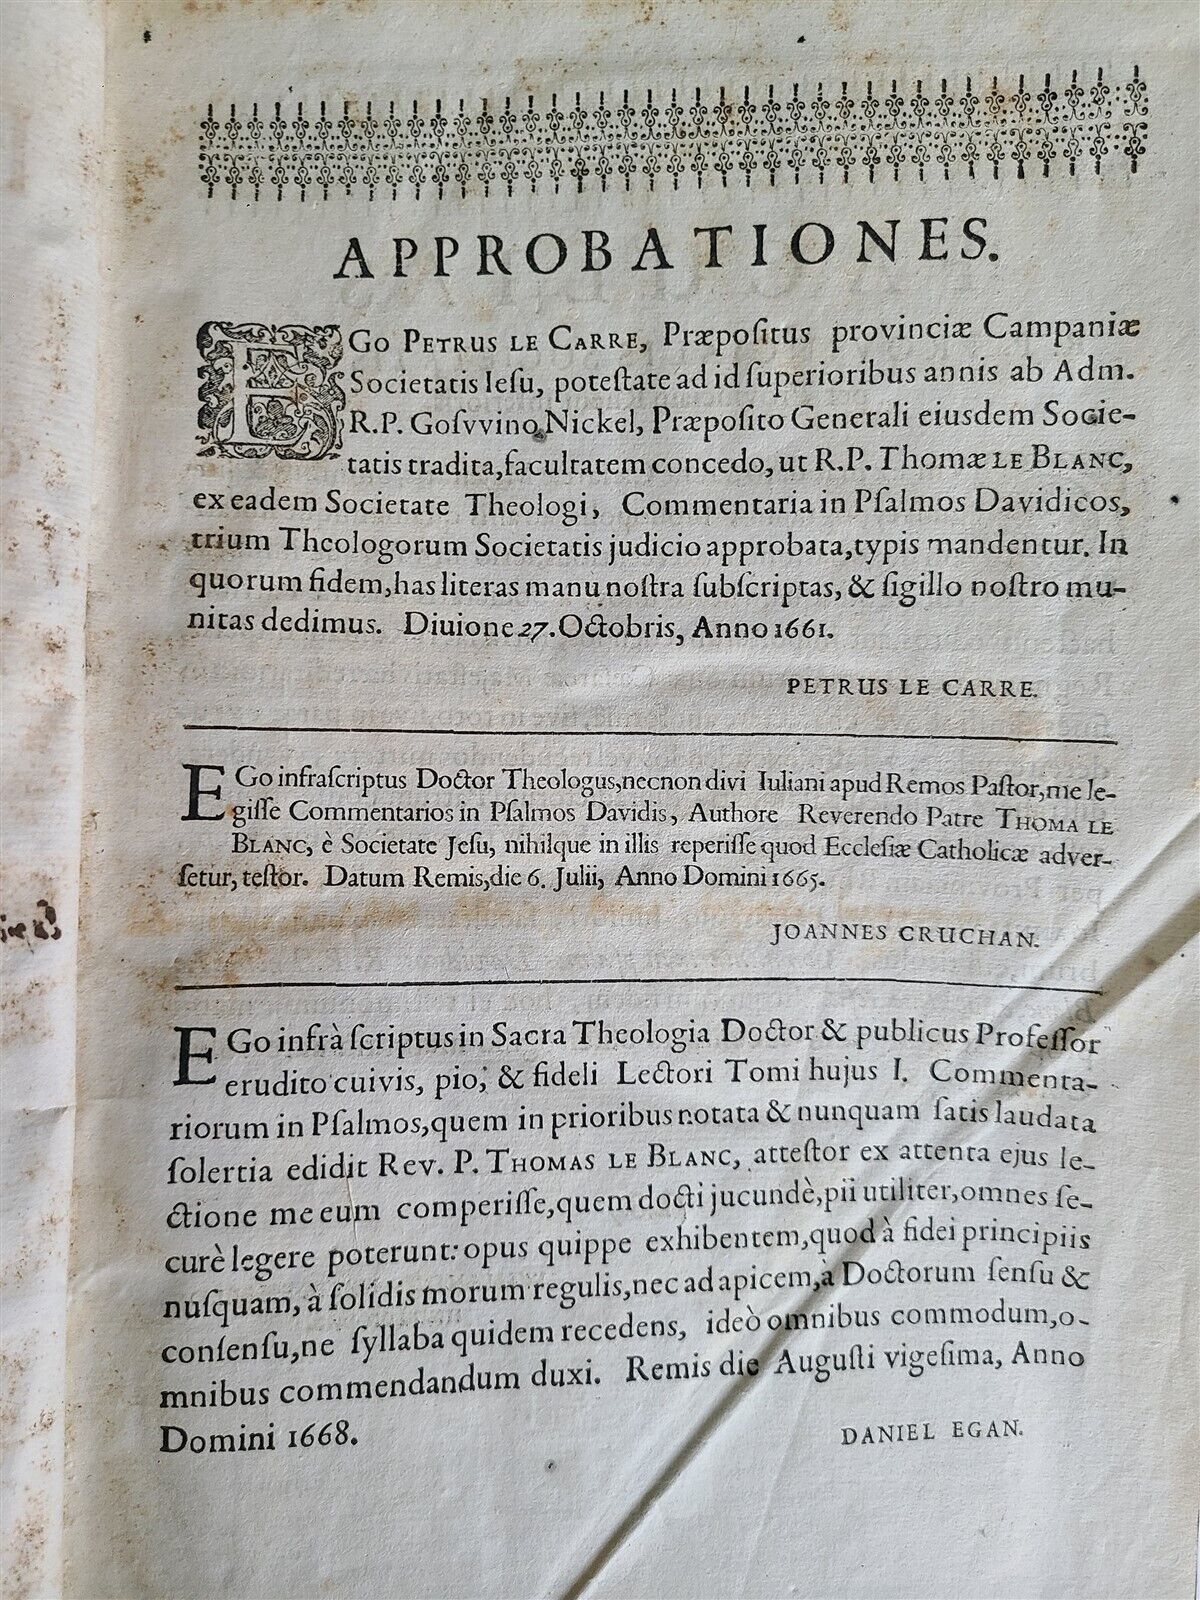 APPROBATIONES.
EGo PETRUS LE CARRE, Præpoſitus provinciæ Campaniæ
Societatis Ieſu, poteſtate ad id ſuperioribus annis ab Adm.
R.P. Goſvvino Nickel, Præpoſito Generali eiusdem Socie-
tatis tradita, facultatem concedo, ut R.P. Thomæ LE BLANC,
ex eadem Societate Theologi, Commentaria in Pſalmos Davidicos,
trium Theologorum Societatis judicio approbata, typis mandentur. In
quorum fidem, has literas manu noſtra ſubſcriptas, & ſigillo noſtro mu-
nitas dedimus. Diuione 27. Octobris, Anno 1661.
PETRUS LE CARRE.
EGo infraſcriptus Doctor Theologus, necnon divi Iuliani apud Remos Paſtor, me le-
giſſe Commentarios in Pſalmos Davidis, Authore Reverendo Patre THOMA LE
BLANC, è Societate Jeſu, nihilque in illis reperiſſe quod Eccleſiæ Catholicæ adver-
ſetur, teſtor. Datum Remis, die 6. Julii, Anno Domini 1665.
JOANNES CRUCHAN.
EGo infrà ſcriptus in Sacra Theologia Doctor & publicus Profeſſor
erudito cuivis, pio, & fideli Lectori Tomi hujus I. Commenta-
riorum in Pſalmos, quem in prioribus notata & nunquam ſatis laudata
ſolertia edidit Rev. P. THOMAS LE BLANC, atteſtor ex attenta ejus le-
ctione me eum comperiſſe, quem docti jucundè, pii utiliter, omnes ſe-
curè legere poterunt: opus quippe exhibentem, quod à fidei principiis
nuſquam, à ſolidis morum regulis, nec ad apicem, à Doctorum ſenſu &
conſenſu, ne ſyllaba quidem recedens, ideò omnibus commodum, o-
mnibus commendandum duxi. Remis die Auguſti vigeſima, Anno
Domini 1668.
DANIEL EGAN.